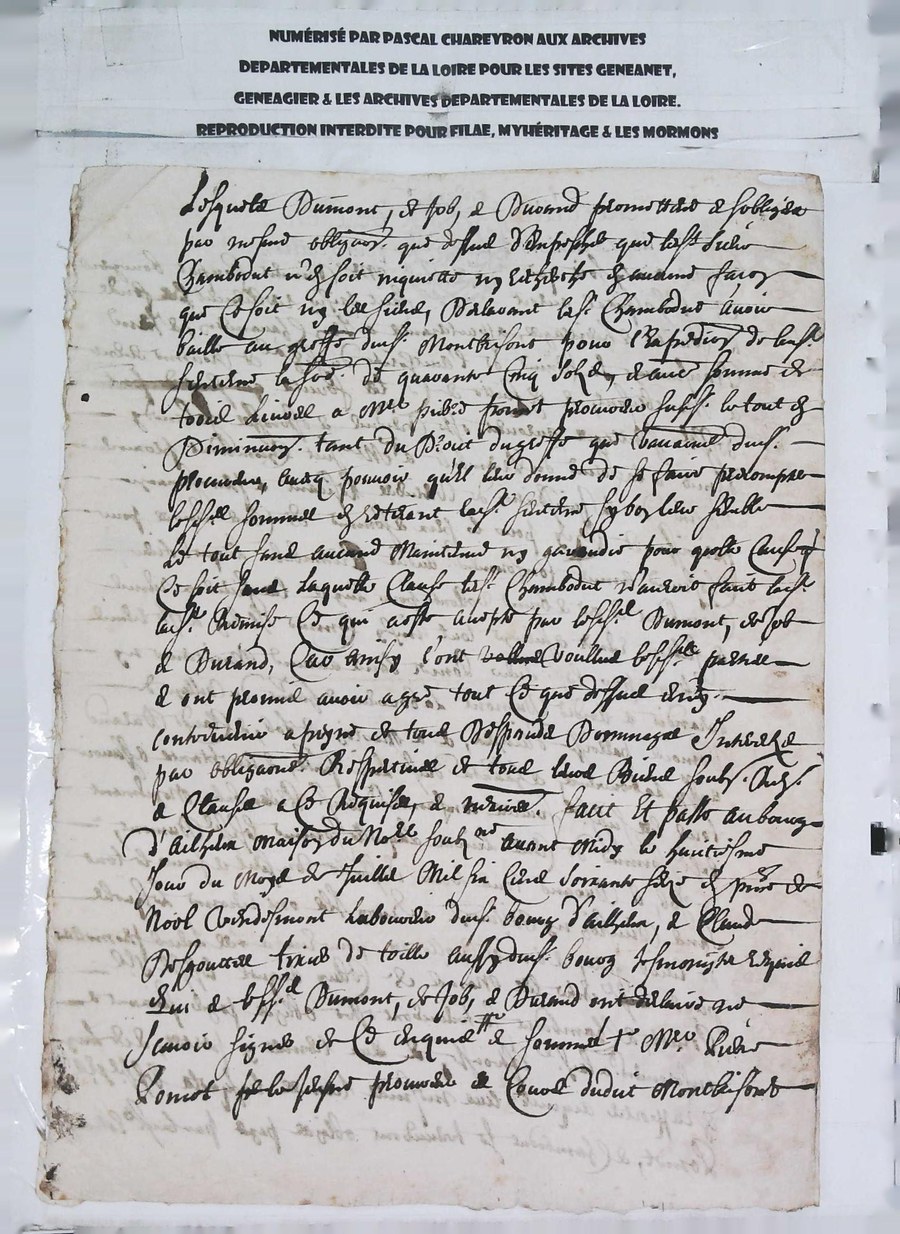 NUMÉRISÉ PAR PASCAL CHAREYRON AUX ARCHIVES
DEPARTEMENTALES DE LA LOIRE POUR LES SITES GENEANET,
GENEAGIER & LES ARCHIVES DEPARTEMENTALES DE LA LOIRE.
REPRODUCTION INTERDITE POUR FILAE, MYHÉRITAGE & LES MORMONS
Lesquels Dumont, de Job, & Durand promettent & sobliger
par mesme obligaon. que dessus que led.
Chambodut n'en soit inquietté ny recherché en aucune facon
que ce soit ny les siens, Declarant led. Chambodut avoir
baillé au greffe dud. Montbrison pour l'expedion de lad.
sentence la so͞e. de quarante cinq solz, & autre somme de
trois livres a Mre procureur susd. le tout en
Diminuon. tant du Droit du greffe que vacaons dud.
procureur, avecq pouvoir qu'il leur donne de se faire
lesd. sommes en retirant lad. sentence sy bon leur semble
Le tout sans aucune Maintenue ny garendie pour quelle cause
Ce soit sans laquelle Clause led. Chambodut n'auroit faite lad.
lad. Remise Ce qui a esté accepté par lesd. Dumont, de Job
& Durand, Car ainsy l'ont voullu lesd. parties
& ont promis avoir agreé tout ce que dessus
contrevenir a peyne de tous Despends Dommages Interestz
par obligaons. Respectives de tous leurs Biens soubz.
& Clauses a ce Requises, & necessres. faict Et passé au bourg
D'ailhieu Maison du Nore soubzné avant Midy le huictiesme
Jour du Moys de Juillet Mil six Cens soixante seize en pnce de
Noel laboureur dud. bourg d'ailhieu, & Claude
Desgouttes tixier de toille aussy dud. bourg tesmoingtz Requis
qui & lesd. Dumont, de Job, & Durand ont declairé ne
scavoir signer de Ce Enquis & sommés † Mre Pierre
procureur es Cours dudit Montbrison